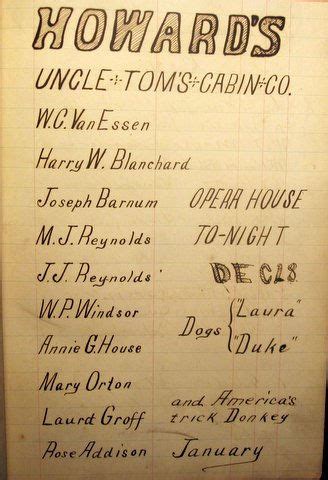 HOWARD'S
UNCLE TOM'S CABIN CO.
W.C. Van Essen
Harry W. Blanchard
Joseph Barnum
OPERA HOUSE
M.J. Reynolds
TO-NIGHT
J.J. Reynolds
W.P. Windsor
Dogs { "Laura"
"Duke"
Annie G. House
Mary Orton
Laura Groff
and America's
trick Donkey
Rose Addison
January